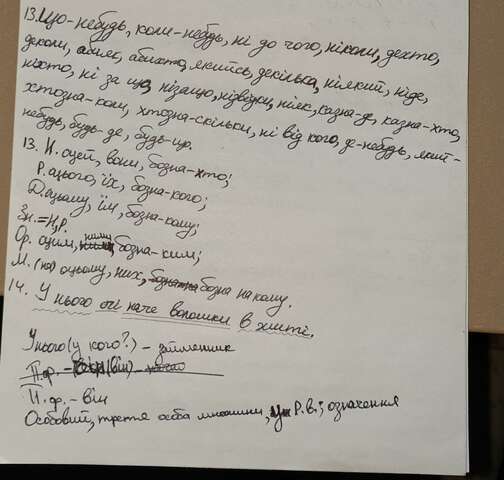 13. Що-небудь, коли-небудь, ні до чого, ніколи, дехто,
деколи, абияк, абихто, якийсь, декілька, ніякий, ніде,
ніхто, ні за що, нізащо, нізвідки, ніяк, казна-де, казна-хто,
хтозна-коли, хтозна-скільки, ні від кого, де-небудь, який-
небудь, будь-де, будь-що.
13. Н. оцей, вони, бозна-хто;
Р. оцього, їх, бозна-кого;
Д. оцьому, їм, бозна-кому;
Зн. = Н, Р.
Ор. оцим, ними, бозна-ким;
М. (на) оцьому, них, бозна на кому.
14. У нього очі наче волошки в житі.
У нього (у кого?) - займенник
П.ф. - (він)
Н.ф. - він
Особовий, третя особа множини, у Р.в.; означення